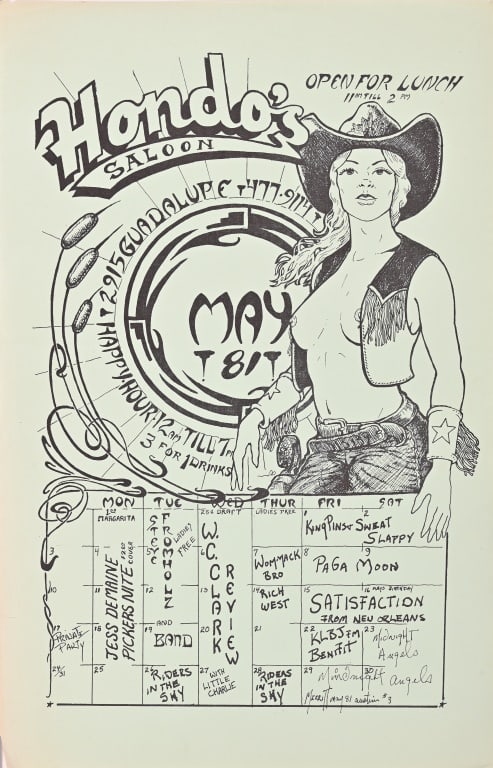 Hondo's
SALOON
OPEN FOR LUNCH
11 AM TILL 2 PM
2915 GUADALUPE † 477-9114 †
HAPPY HOUR 12 AM TILL 7 PM
3 FOR 1 DRINKS
MAY
† 81 †
MON TUE WED THUR FRI SAT
MARGARITA
LADIES FREE
25¢ DRAFT
LADIES FREE
1 2
KINGPINS SWEAT
SLAPPY
3 4 6 7 8 9
JESS DEMAINE
PICKERS NITE
COVER
STEVE
FROMHOLZ
AND
BAND
W.C. CLARK
REVIEW
WOMMACK
BRO
PAGA MOON
10 11 12 13 14 15 16
RICH
WEST
MAYO BIRTHDAY
SATISFACTION
FROM NEW ORLEANS
17 18 19 20 21 22 23
PRIVATE
PARTY
KLBJ FM
BENIFIT
Midnight
Angels
24/31 25 26 27 28 29 30
RIDERS
IN THE
SKY
WITH
LITTLE
CHARLIE
RIDERS
IN THE
SKY
Midnight Angels
may 81 austin #3